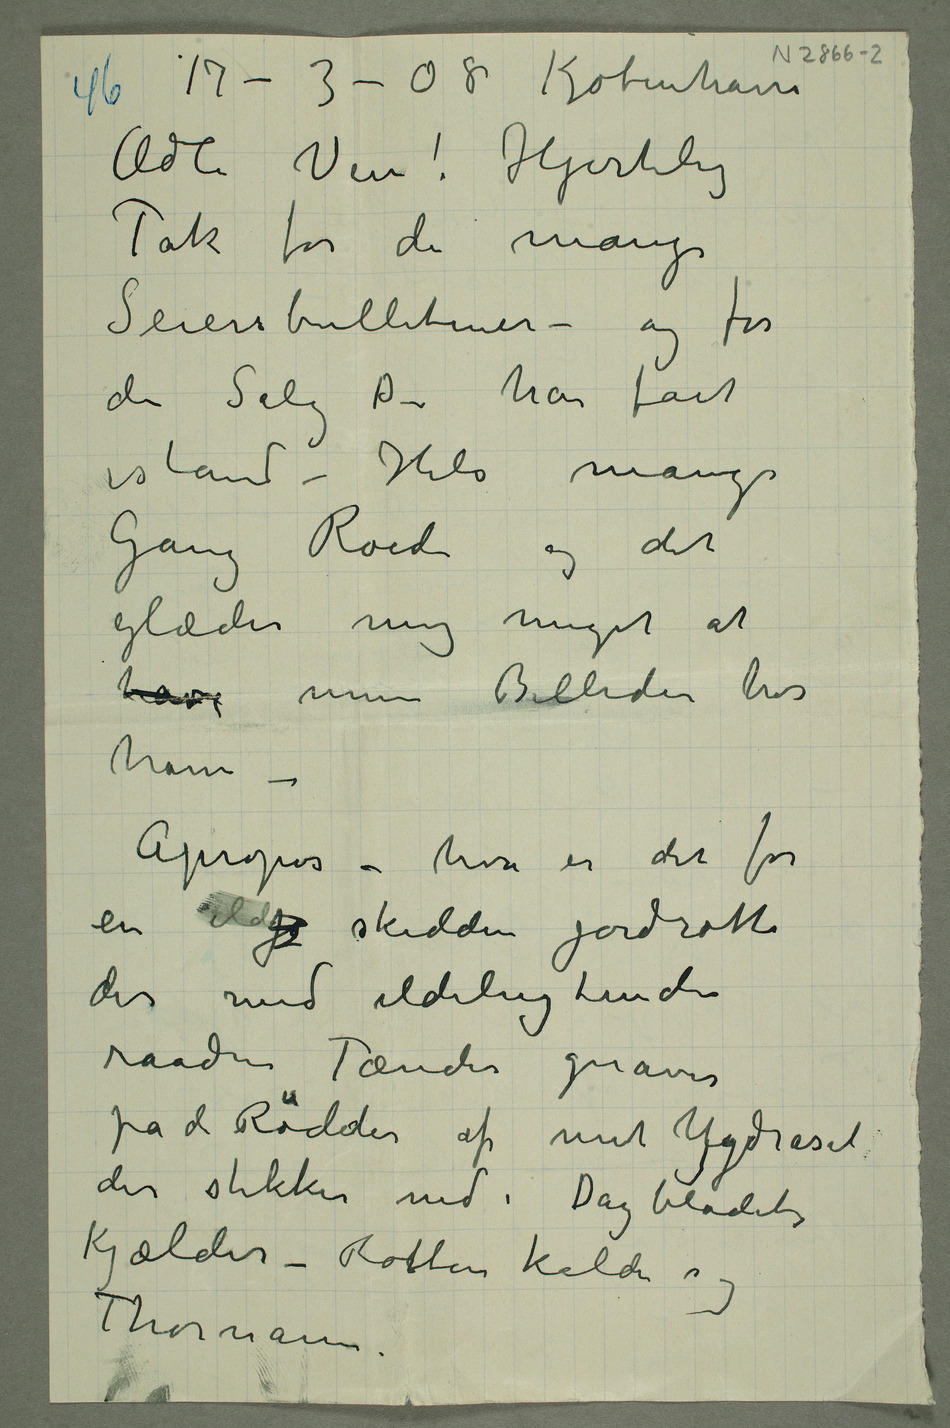 N 2866-2
46 17 – 3 – 08 Kjøbenhavn
Ædle Ven! Hjertelig
Tak for de mange
Seiersbulletiner – og for
de Salg Du har fået
istand – Hils mange
Gang Roede og det
glæder mig meget at
have mine Billeder hos
ham –
Apropos – hva er det for
en ild skidden jordrotte
der med ildelugtende
raadne Tænder gnaver
på de Rødder af mit Ygdrasil
der stikker ned i Dagbladets
Kjælder – Rotten kalder sig
Thormann.